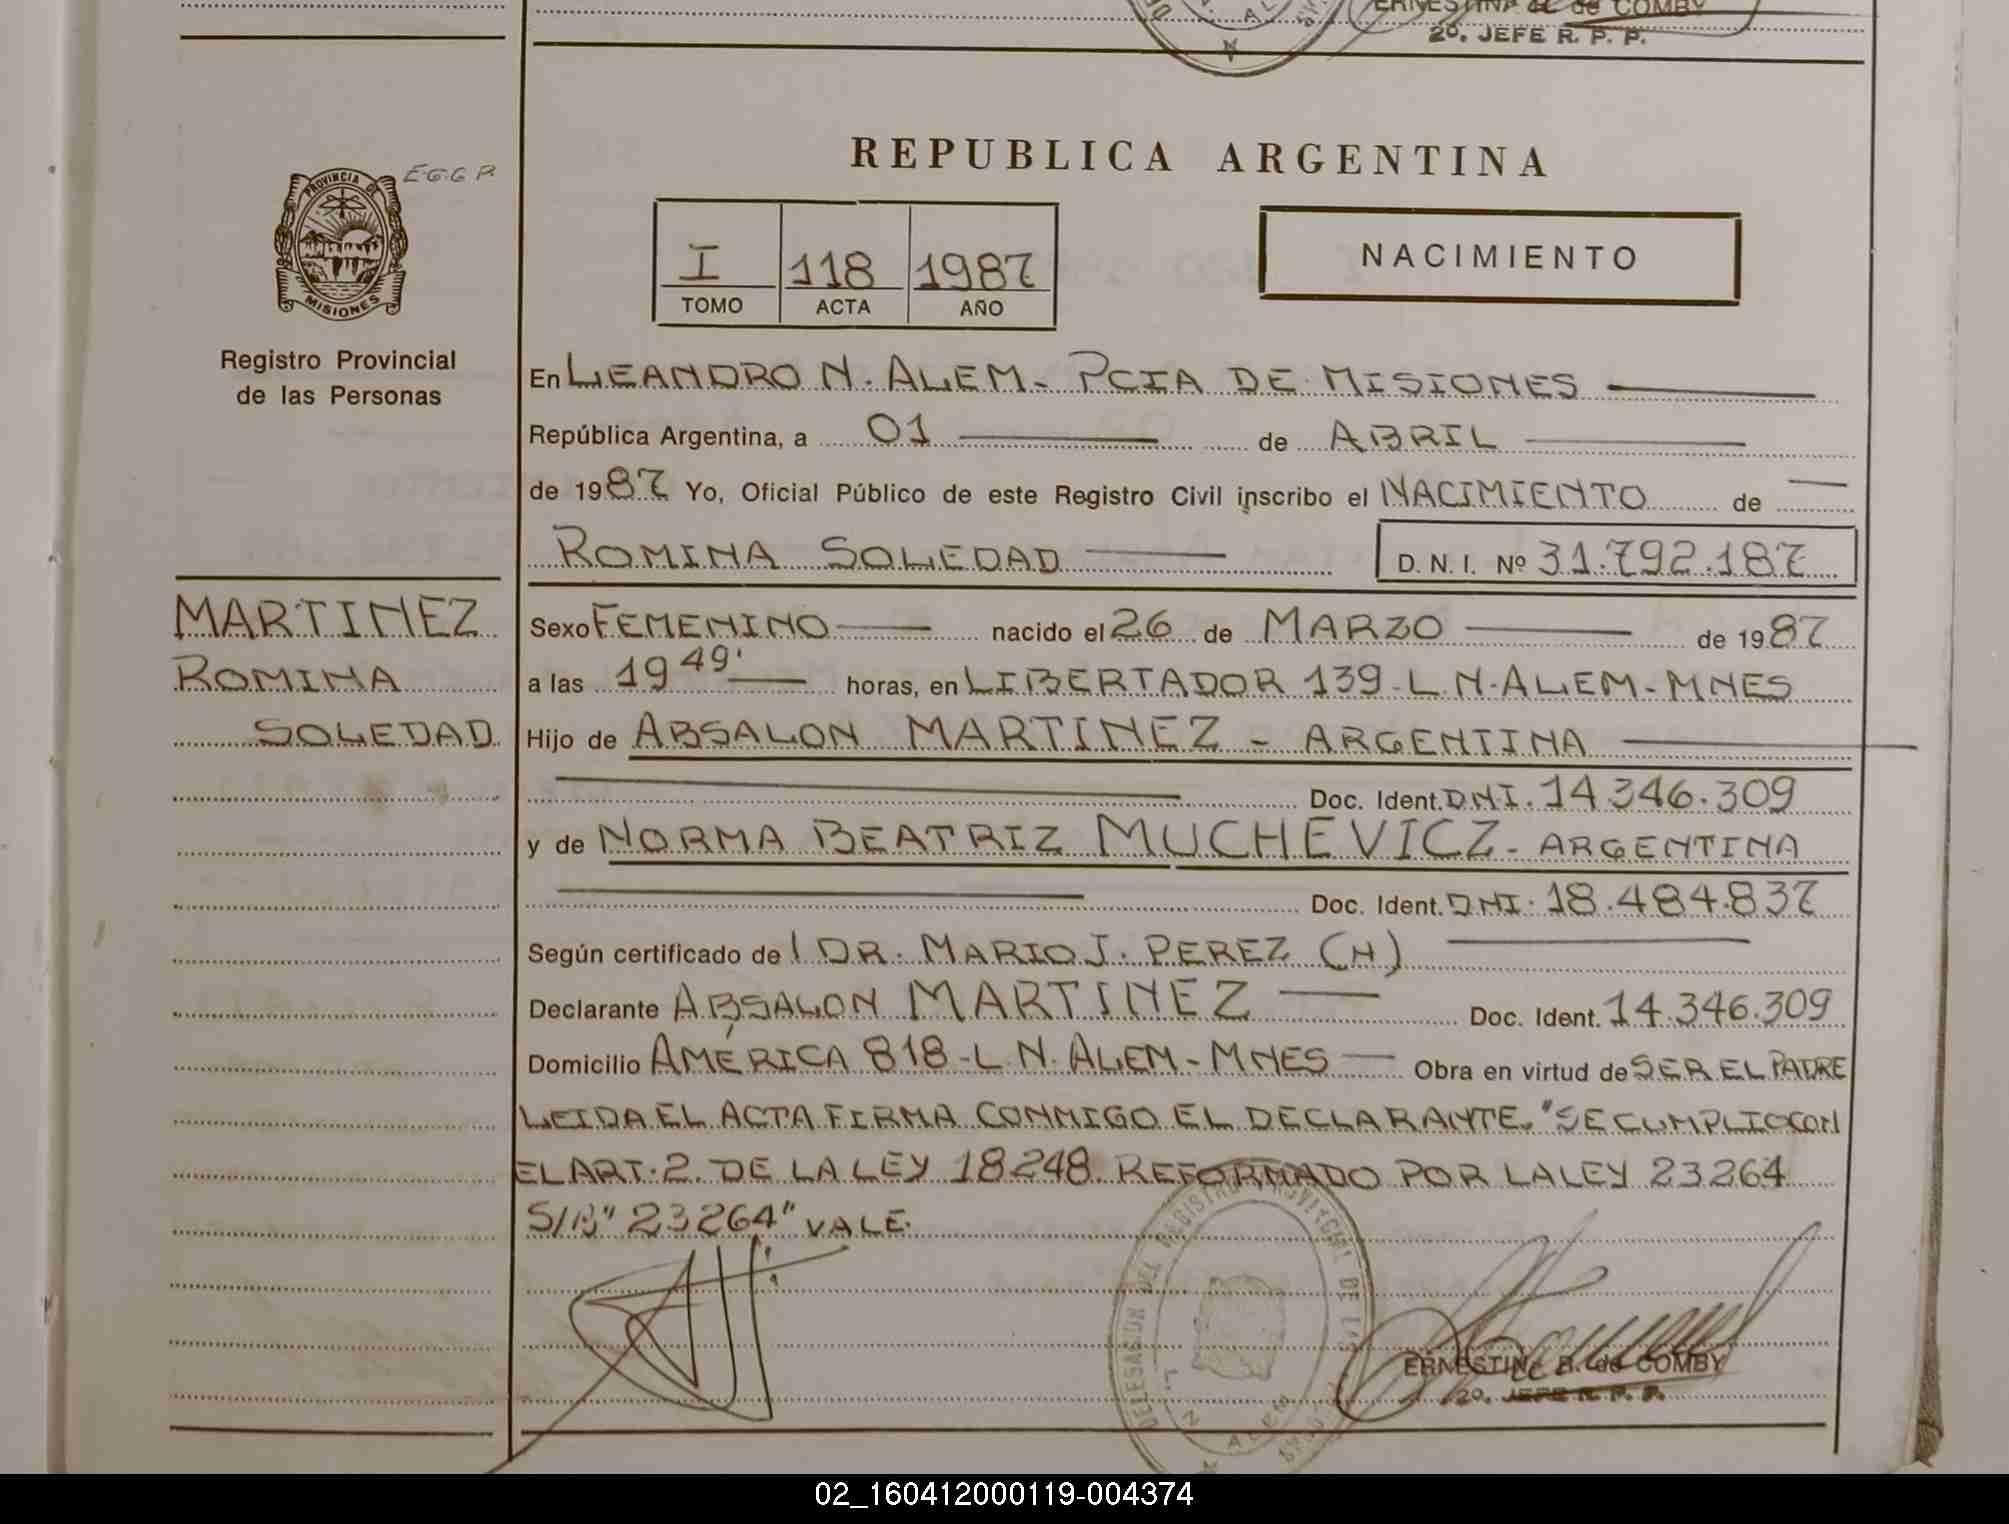 ERNESTINA B. de COMBY
2º. JEFE R. P. P.
E.G.G.P.
PROVINCIA DE
MISIONES
Registro Provincial
de las Personas
REPUBLICA ARGENTINA
I 118 1987
TOMO ACTA AÑO
NACIMIENTO
En LEANDRO N. ALEM - PCIA DE MISIONES
República Argentina, a 01 de ABRIL
de 1987 Yo, Oficial Público de este Registro Civil inscribo el NACIMIENTO de
ROMINA SOLEDAD D. N. I. Nº 31.792.187
MARTINEZ
ROMINA
SOLEDAD
Sexo FEMENINO nacido el 26 de MARZO de 1987
a las 19 49' horas, en LIBERTADOR 139 - L. N. ALEM - MNES
Hijo de ABSALON MARTINEZ - ARGENTINA
Doc. Ident. DNI. 14.346.309
y de NORMA BEATRIZ MUCHEVICZ - ARGENTINA
Doc. Ident. DNI. 18.484.837
Según certificado del DR. MARIO J. PEREZ (H)
Declarante ABSALON MARTINEZ Doc. Ident. 14.346.309
Domicilio AMÉRICA 818 - L N. ALEM - MNES Obra en virtud de SER EL PADRE
LEIDA EL ACTA FIRMA CONMIGO EL DECLARANTE. "SE CUMPLIO CON
EL ART. 2. DE LA LEY 18248 REFORMADO POR LA LEY 23264
S/B" 23264" VALE.
DELEGACION DEL REGISTRO PROVINCIAL DE LAS
L. N. ALEM
ERNESTINA B. de COMBY
2º. JEFE R. P. P.
02_160412000119-004374